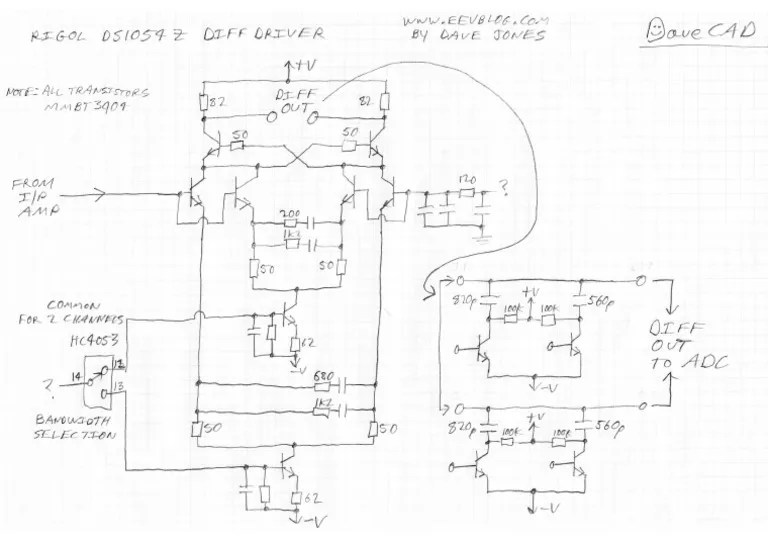 RIGOL DS1054Z DIFF DRIVER
WWW.EEVBLOG.COM
BY DAVE JONES
DaveCAD
NOTE: ALL TRANSISTORS
MMBT3904
+V
82
DIFF
OUT
82
50
50
FROM
I/P
AMP
120
?
200
1k2
50
50
COMMON
FOR 2 CHANNELS
HC4053
12
14
?
13
BANDWIDTH
SELECTION
62
-V
680
1k2
50
50
62
-V
820p
+V
560p
100k
100k
-V
DIFF
OUT
TO ADC
820p
+V
560p
100k
100k
-V